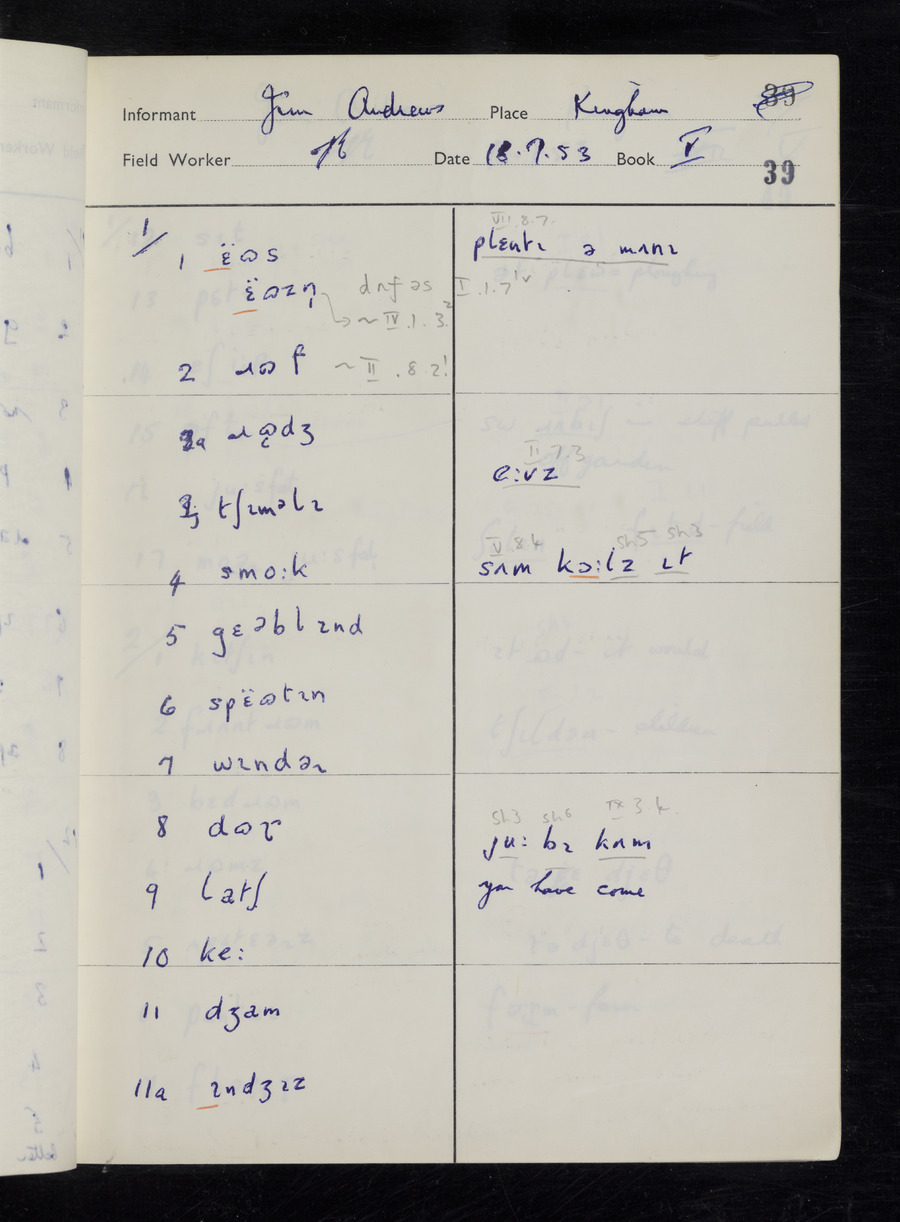 Informant Jim Andrews Place Kingham 39
Field Worker Date 18.7.53 Book V
39
1/
1 ɛ̈ɷs
ɛ̈ɷzɪŋ dʌfəs I.1.7
~ IV.1.3
2 ɹɷf ~ II.8.2!
VII.8.7.
plɛntɪ ə mʌnɪ
2a ɹɷdʒ
3 tʃɪməlɪ
4 smo:k
II.7.3
e:vz
V 8 4 Sh5 Sh3
sʌm kɔ:lz ɪt
5 gɛəblɪnd
6 spɛ̈ɷtɪn
7 wɪndəɪ
8 dɷɽ
9 latʃ
10 ke:
Sh3 Sh6 IX 3.4.
ju: bɪ kʌm
you have come
11 dʒam
11a ɪndʒɪz